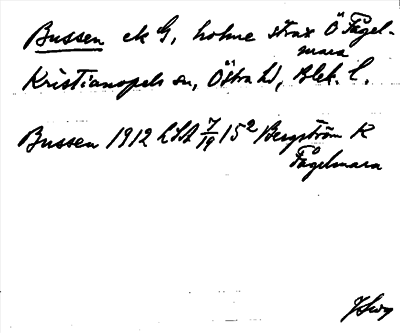 Bussen ek G, holme strax Ö Fågel-
mara
Kristianopels sn, Östra hd, Blek. l.
Bussen 1912 LSA 7/19 15² Bergström K
Fågelmara